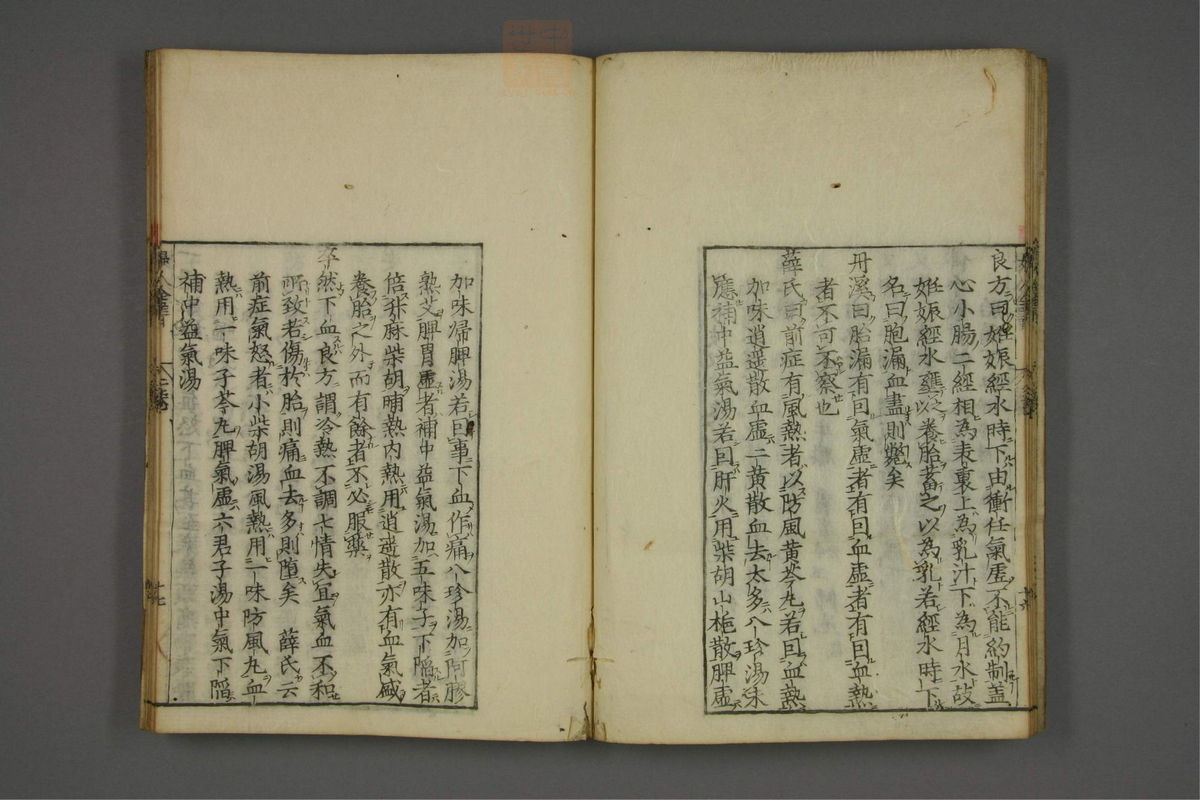 良方曰妊娠經水時下由衝任氣虛不能約制盖
心小腸二經相為表裏上為乳汁下為月水故
妊娠經水壅之以養胎蓄之以為乳若經水時下
名曰胞漏血盡則斃矣
丹溪曰胎漏有因氣虛者有因血虛者有因血熱
者不可不察也
薛氏曰前症有風熱者以防風黄芩丸若因血熱
加味逍遥散血虛二黄散血去太多八珍湯未
應補中益氣湯若因肝火用柴胡山梔散脾虛
加味歸脾湯若因事下血作痛八珍湯加阿膠
熟艾脾胃虛者補中益氣湯加五味子下陷者
倍升麻柴胡晡熱内熱用逍遥散亦有血氣盛
養胎之外而有餘者不必服藥
卒然下血良方謂冷熱不調七情失宜氣血不和
所致若傷於胎則痛血去多則墮矣 薛氏云
前症氣怒者小柴胡湯風熱用一味防風丸血
熱用一味子芩丸脾氣虛六君子湯中氣下陷
補中益氣湯